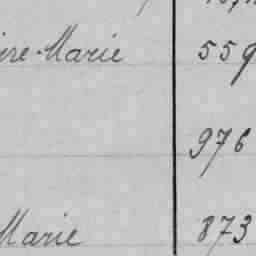 ire-Marie 559
976
Marie 873